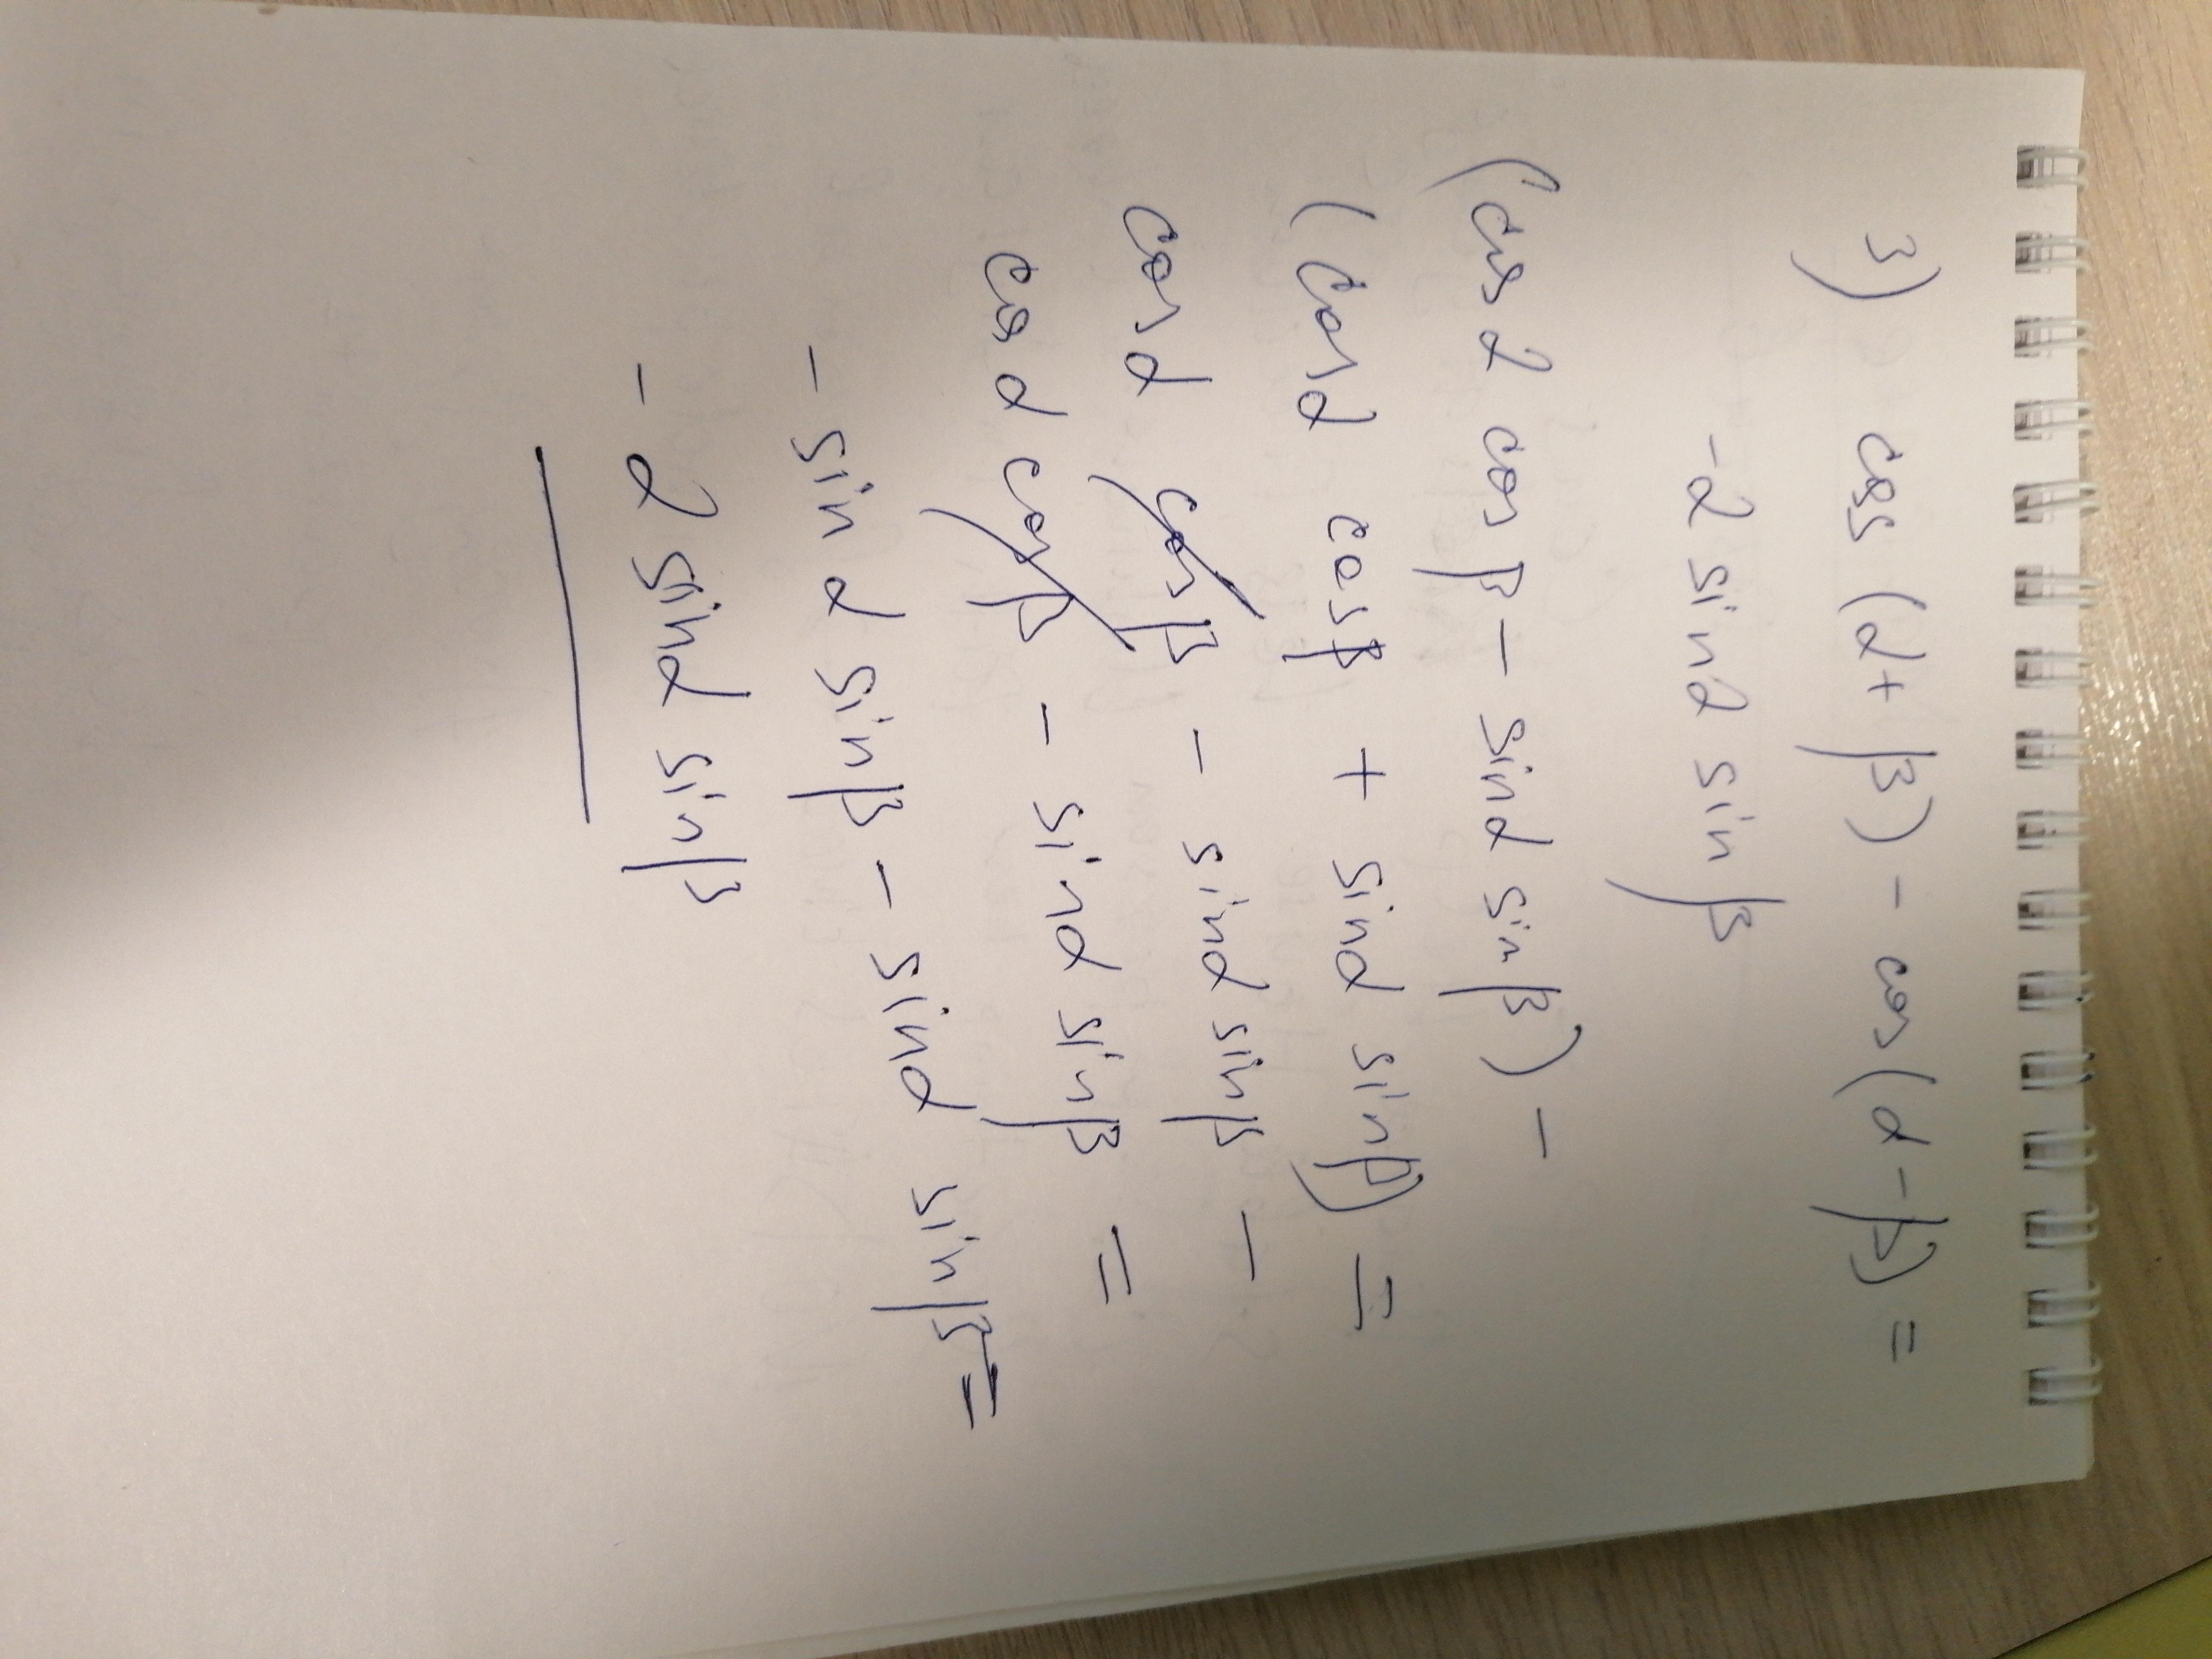 3) cos (α + β) - cos (α - β) =
- 2 sin α sin β
(cos α cos β - sin α sin β) -
(cos α cos β + sin α sin β) =
cos α cos β - sin α sin β -
cos α cos β - sin α sin β =
- sin α sin β - sin α sin β =
- 2 sin α sin β